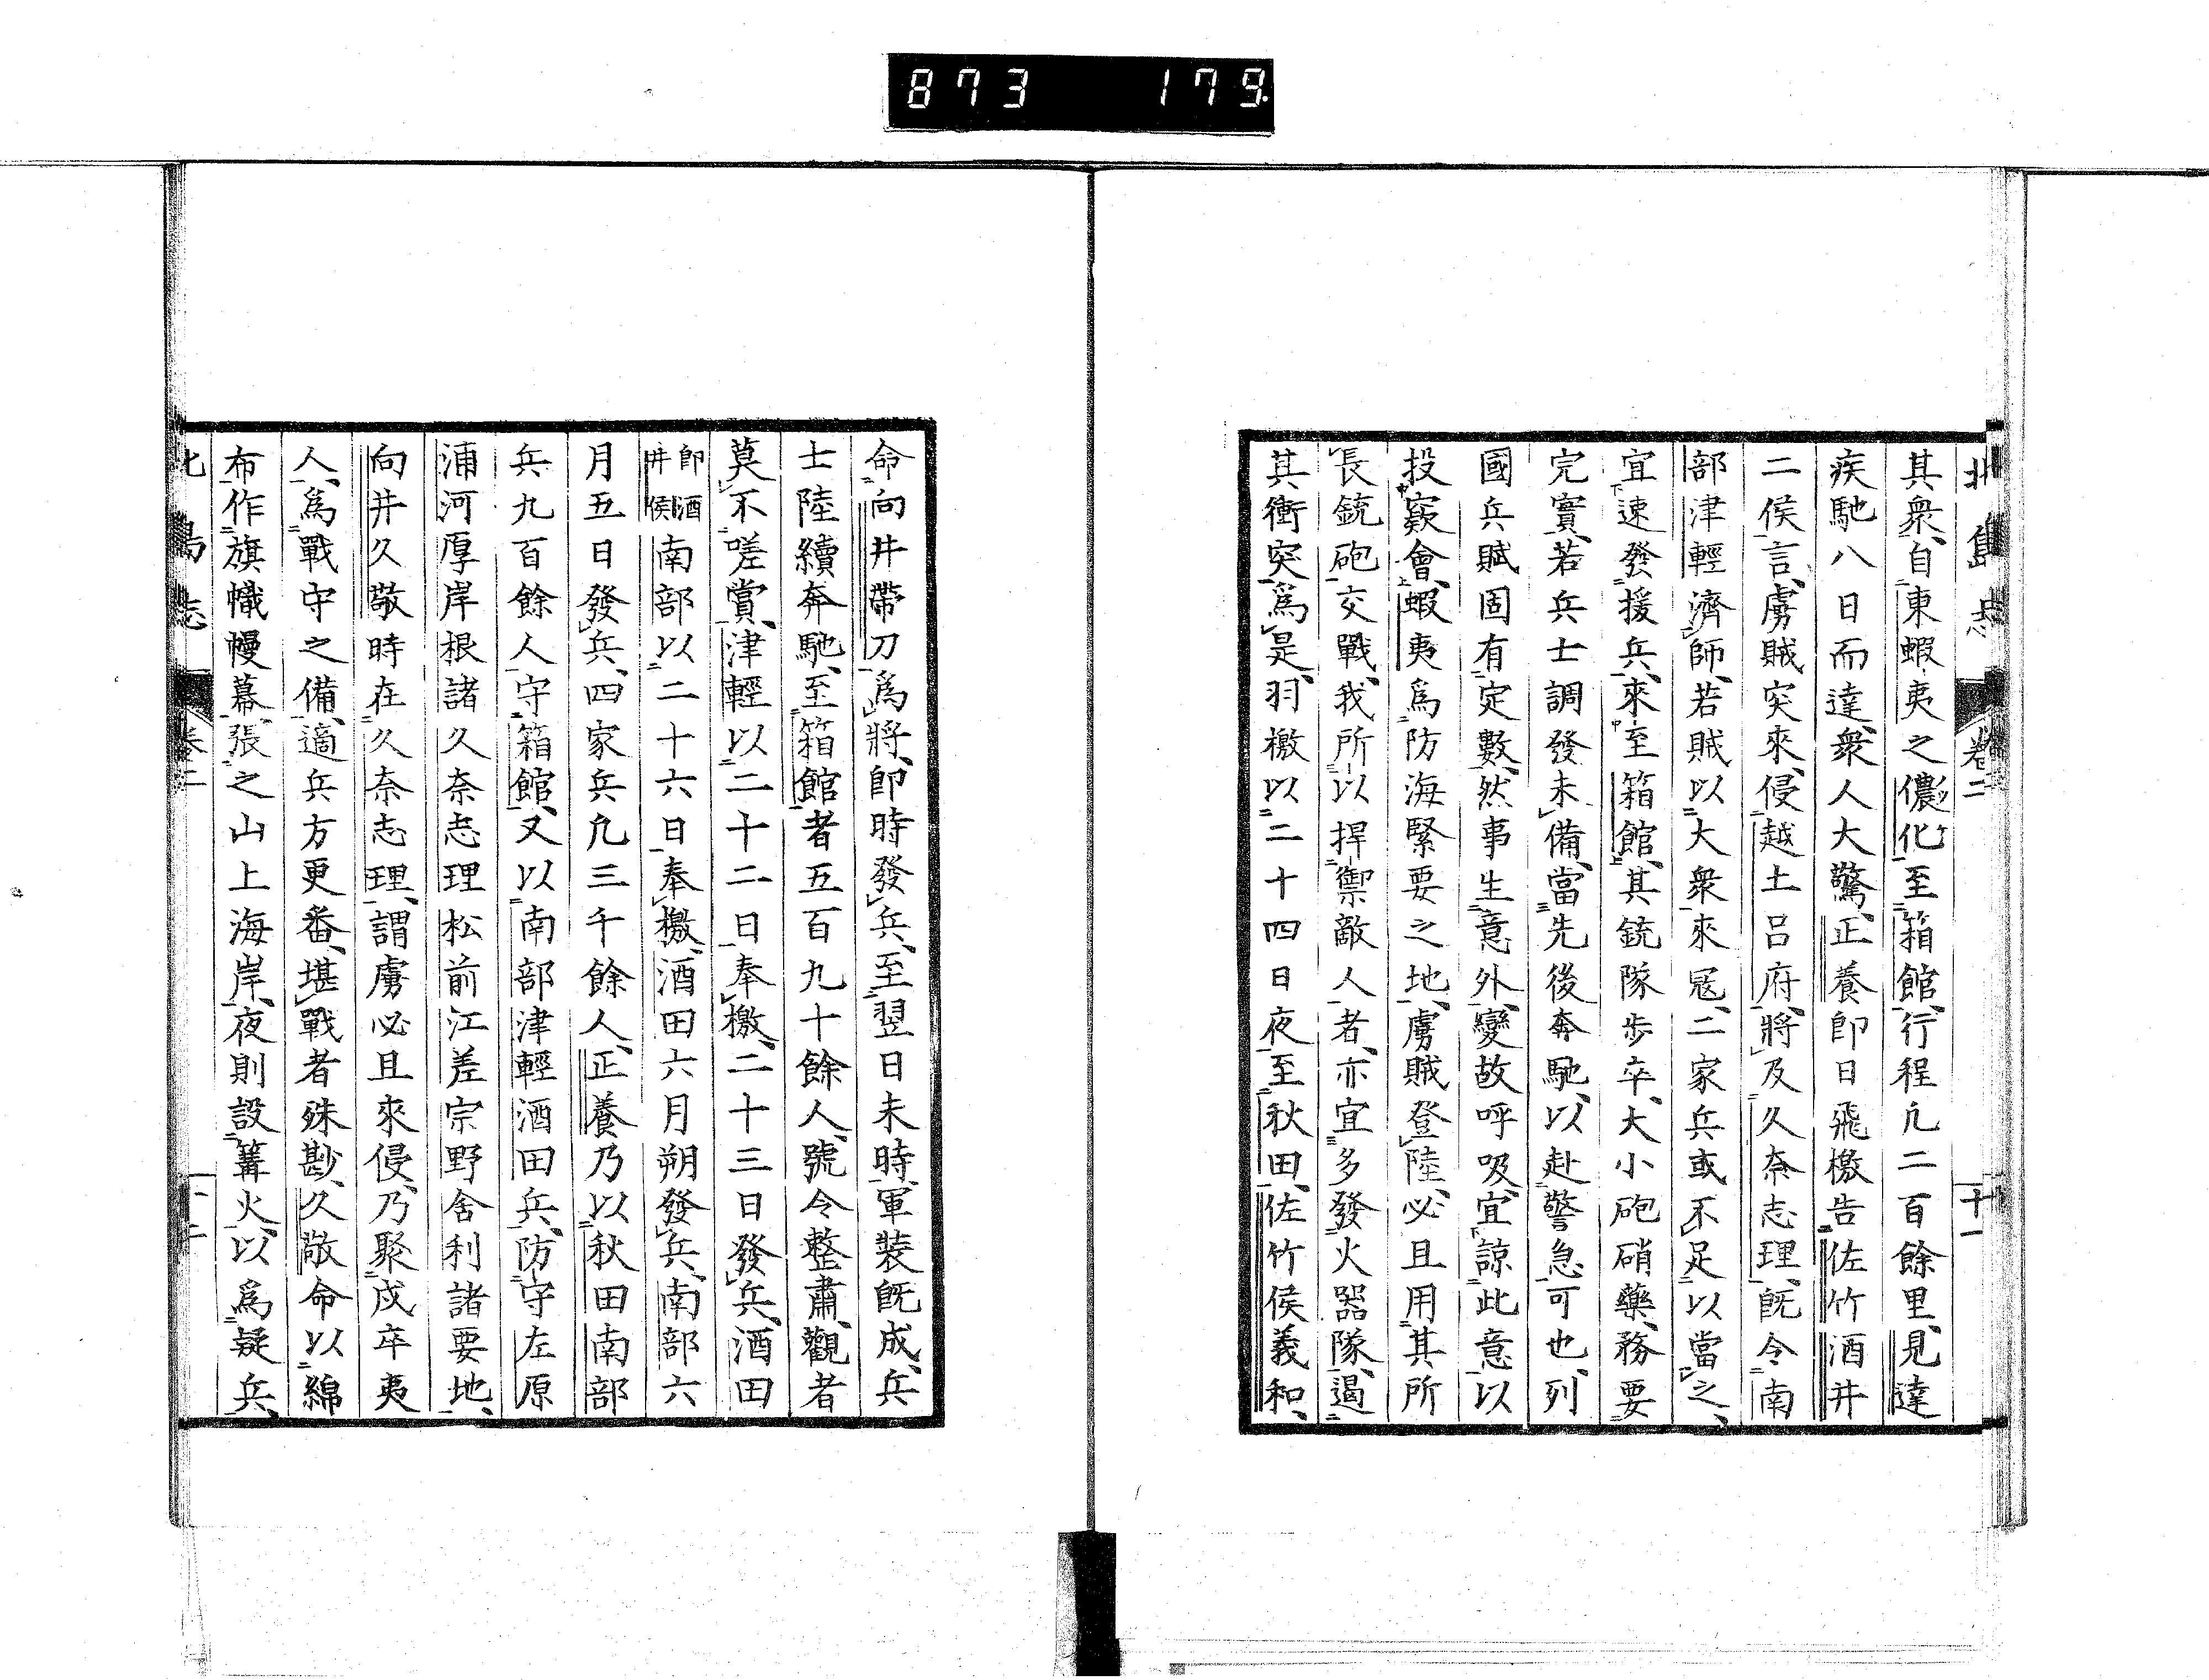 873 179
北島志 卷二 十一
其衆、自東蝦夷之儂化至箱館、行程凢二百餘里、見達
疾馳八日而達、衆人大驚、正養卽日飛檄告佐竹酒井
二侯言、虜賊突來、侵越土呂府、將及久奈志理、旣令南
部津輕濟師、若賊以大衆來寇、二家兵或不足以當之、
宜速發援兵、來至箱館、其銃隊歩卒、大小砲硝藥、務要
完實、若兵士調發未備、當先後奔馳、以赴警急可也、列
國兵賦固有定數、然事生意外、變故呼吸、宜諒此意以
投竅會、蝦夷爲防海緊要之地、虜賊登陸、必且用其所
長銃砲交戰、我所以捍禦敵人者、亦宜多發火器隊、遏
其衝突、爲是、羽檄以二十四日夜至秋田、佐竹侯義和、
命向井帶刀爲將、卽時發兵、至翌日未時、軍裝旣成、兵
士陸續奔馳、至箱館者五百九十餘人、號令整肅、觀者
莫不嗟賞、津輕以二十二日奉檄、二十三日發兵、酒田
卽酒井侯南部以二十六日奉檄、酒田六月朔發兵、南部六
月五日發兵、四家兵凢三千餘人、正養乃以秋田南部
兵九百餘人守箱館、又以南部津輕酒田兵、防守左原
浦河厚岸根諸久奈志理松前江差宗野舍利諸要地、
向井久敬時在久奈志理、謂虜必且來侵、乃聚戍卒夷
人、爲戰守之備、適兵方更番、堪戰者殊尠、久敬命以綿
布作旗幟幔幕、張之山上海岸、夜則設篝火、以爲疑兵、
北島志 卷二 十二